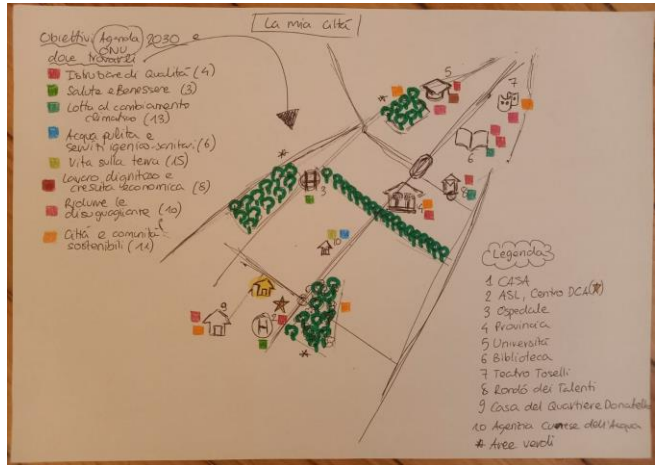 La mia città
Obiettivi Agenda 2030 e
ONU
dove trovarli
Istruzione di Qualità (4)
Salute e Benessere (3)
Lotta al cambiamento
climatico (13)
Acqua pulita e
servizi igienico-sanitari (6)
Vita sulla terra (15)
Lavoro dignitoso e
crescita economica (8)
Ridurre le
disuguaglianze (10)
Città e comunità
sostenibili (11)
5
7
6
3
4
8
10
1
9
2
H
Legenda
1 CASA
2 ASL, Centro DCA(★)
3 Ospedale
4 Provincia
5 Università
6 Biblioteca
7 Teatro Toselli
8 Rondò dei Talenti
9 Casa del Quartiere Donatello
10 Agenzia Cuneese dell'Acqua
* Aree verdi